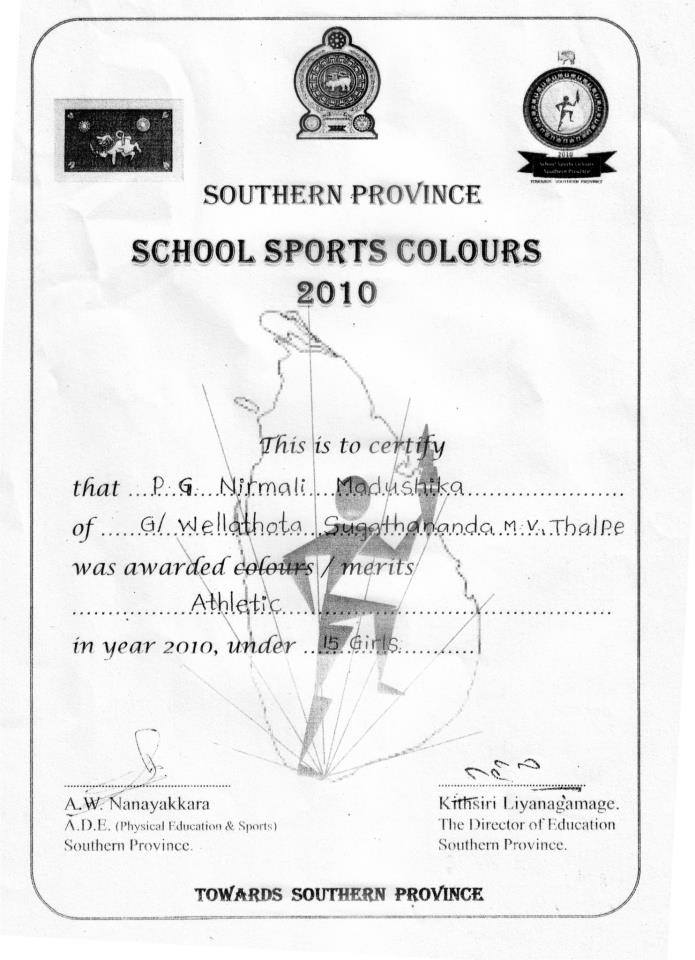 2010
School Sports Colours
Southern Province
TOWARDS SOUTHERN PROVINCE
SOUTHERN PROVINCE
SCHOOL SPORTS COLOURS
2010
This is to certify
that ...P. G. Nirmali Madushika..............................
of ......G/ Wellathota Sugathananda M.V, Thalpe
was awarded colours / merits
.................Athletic..................................................
in year 2010, under ...15 Girls............
A.W. Nanayakkara
A.D.E. (Physical Education & Sports)
Southern Province.
Kithsiri Liyanagamage.
The Director of Education
Southern Province.
TOWARDS SOUTHERN PROVINCE